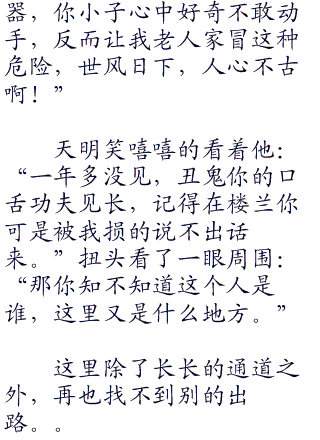 器，你小子心中好奇不敢动
手，反而让我老人家冒这种
危险，世风日下，人心不古
啊！”
天明笑嘻嘻的看着他：
“一年多没见，丑鬼你的口
舌功夫见长，记得在楼兰你
可是被我损的说不出话
来。”扭头看了一眼周围：
“那你知不知道这个人是
谁，这里又是什么地方。”
这里除了长长的通道之
外，再也找不到别的出
路。。